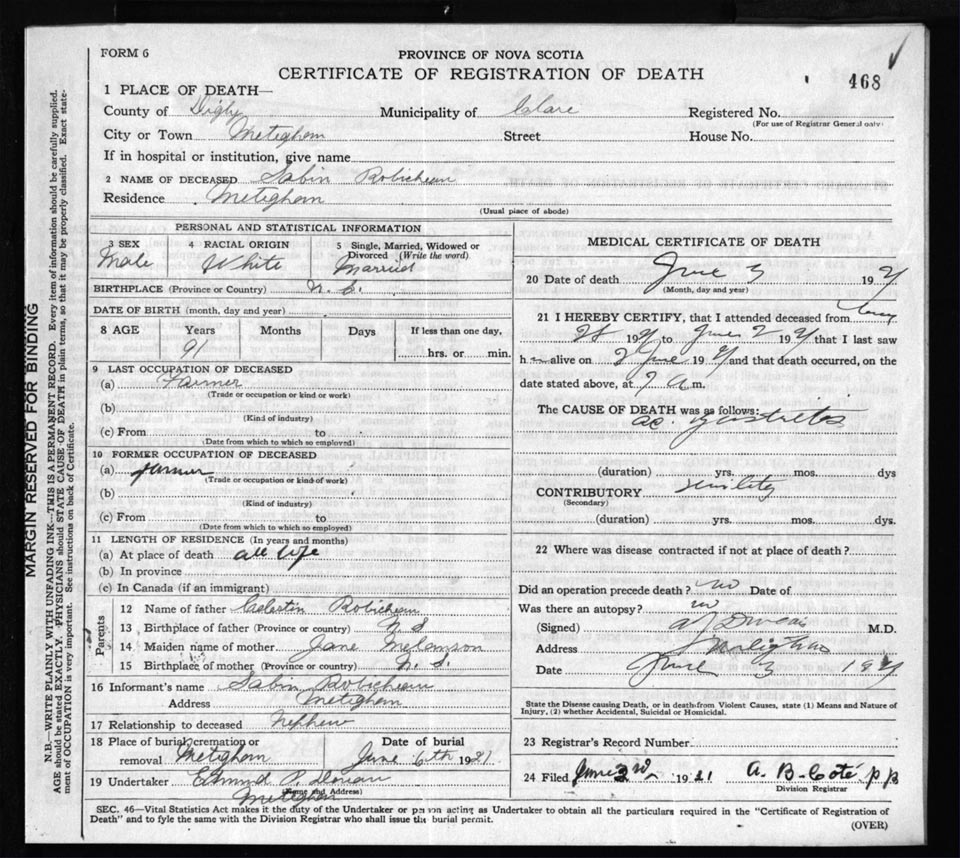 FORM 6
PROVINCE OF NOVA SCOTIA
CERTIFICATE OF REGISTRATION OF DEATH
468
1 PLACE OF DEATH—
County of Digby Municipality of Clare Registered No.
(For use of Registrar General only)
City or Town Meteghan Street House No.
If in hospital or institution, give name
2 NAME OF DECEASED Sabin Robicheau
Residence Meteghan
(Usual place of abode)
PERSONAL AND STATISTICAL INFORMATION
3 SEX 4 RACIAL ORIGIN 5 Single, Married, Widowed or Divorced (Write the word)
Male White Married
BIRTHPLACE (Province or Country)
DATE OF BIRTH (month, day and year)
8 AGE Years Months Days If less than one day,
91 hrs. or min.
9 LAST OCCUPATION OF DECEASED
(a) Farmer
(Trade or occupation or kind or work)
(b)
(Kind of industry)
(c) From to
(Date from which to which so employed)
10 FORMER OCCUPATION OF DECEASED
(a) farmer
(Trade or occupation or kind of work)
(b)
(Kind of industry)
(c) From to
(Date from which to which so employed)
11 LENGTH OF RESIDENCE (In years and months)
(a) At place of death all life
(b) In province
(c) In Canada (if an immigrant)
Parents
12 Name of father Celestin Robicheau
13 Birthplace of father (Province or country) N S
14 Maiden name of mother Jane Melanson
15 Birthplace of mother (Province or country) N. S.
16 Informant's name Sabin Robicheau
Address Meteghan
17 Relationship to deceased Nephew
18 Place of burial, cremation or removal Meteghan Date of burial June 6th 1921
19 Undertaker Edmund P. Doucau
(Name and Address)
Meteghan
MEDICAL CERTIFICATE OF DEATH
20 Date of death June 3 192
(Month, day and year)
21 I HEREBY CERTIFY, that I attended deceased from
28 192 to June 2 192 that I last saw
h alive on 2 June 192 and that death occurred, on the
date stated above, at 7 a m.
The CAUSE OF DEATH was as follows:
ac. gastritis
(duration) yrs. mos. dys
CONTRIBUTORY senility
(Secondary)
(duration) yrs. mos. dys.
22 Where was disease contracted if not at place of death?
Did an operation precede death? no Date of
Was there an autopsy? no
(Signed) M.D.
Address Meteghan
Date June 3 192
State the Disease causing Death, or in death from Violent Causes, state (1) Means and Nature of
Injury, (2) whether Accidental, Suicidal or Homicidal.
23 Registrar's Record Number
24 Filed June 3rd 1921 A. B. Coté
Division Registrar
SEC. 46—Vital Statistics Act makes it the duty of the Undertaker or person acting as Undertaker to obtain all the particulars required in the "Certificate of Registration of
Death" and to fyle the same with the Division Registrar who shall issue the burial permit.
(OVER)
MARGIN RESERVED FOR BINDING
N.B.—WRITE PLAINLY WITH UNFADING INK—THIS IS A PERMANENT RECORD. Every item of information should be carefully supplied.
AGE should be stated EXACTLY. PHYSICIANS should STATE CAUSE OF DEATH in plain terms, so that it may be properly classified. Exact state-
ment of OCCUPATION is very important. See instructions on back of Certificate.